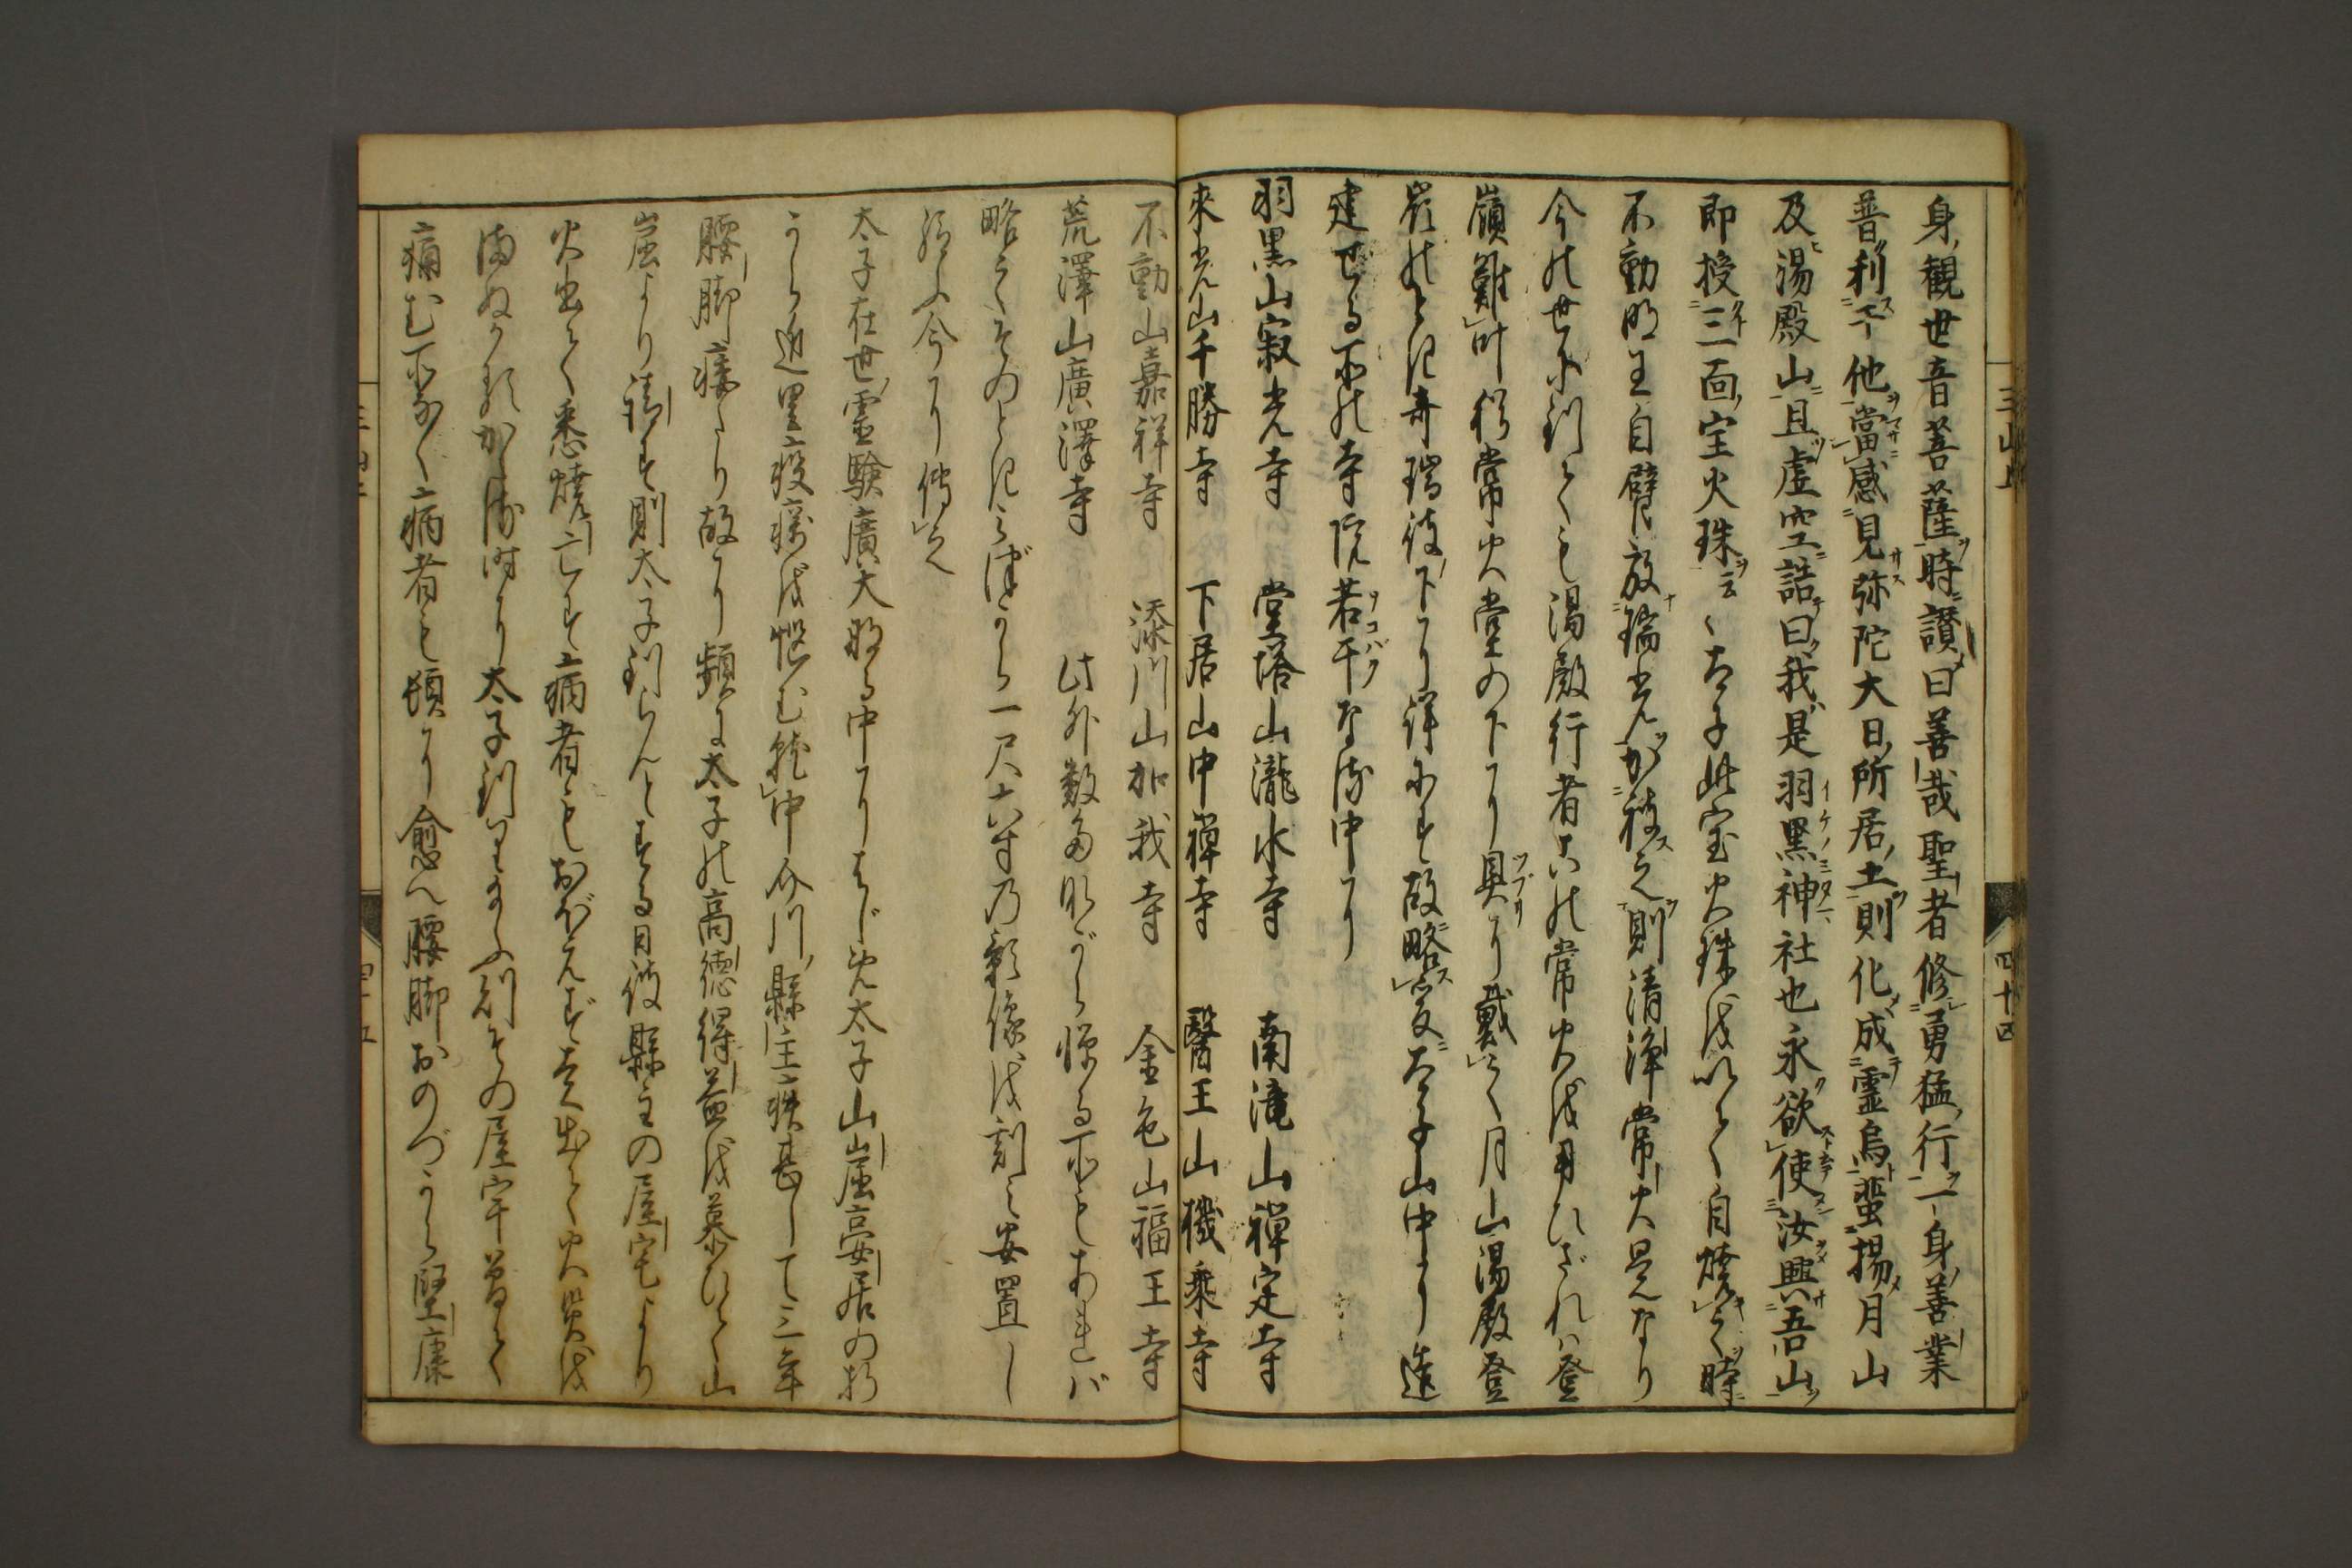 身観世音菩薩時讃曰善哉聖者修勇猛行一身善業
普利干他當感見弥陀大日所居土則化成霊烏蜚揚月山
及湯殿山且虚空誥曰我是羽黒神社也永欲使汝興吾山
即授三面宝火珠云〻太子此宝火珠を以て自焼て時
不動明王自臂放瑞光が被之則清浄常火是なり
今の世に到ても湯殿行者此の常火を用ひざれハ登
嶺難叶仍常火堂の下に具に戴て月山湯殿登
岩のとき奇瑞彼下に詳にす故略爰太子山中に造
建せる所の寺院若干なる中に
羽黒山寂光寺 堂塔山瀧水寺 南滝山禅定寺
来光山千勝寺 下居山中禅寺 醫王山機乘寺
不動山嘉祥寺 添川山加我寺 金色山福王寺
荒澤山廣澤寺 此外数多ながら憚る所もあれバ
略之そのときみづから一尺六寸乃影像を刻之安置し
給ふ今に傳之
太子在世霊験廣大なる中にもはじめ太子山崫宴居の折
から近里疫癘を悩む就中介川縣主疾甚して三年
腰脚痿たり故に頻に太子の高徳得益を慕ひて山
崫より請す則太子到らんとする日彼縣主の屋宅より
火出て悉焼亡す病者もおぼえず走出て火災を
まぬかるがる時に太子到りまふ則その屋宇曽て
痛む所なく病者も頓に愈へ腰脚おのづから堅康
三山上
四十四
四十五